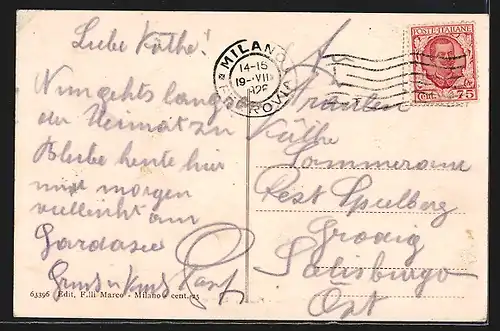 Liebe Käthe!
Nun gehts langs
der Heimat zu
Bleibe heute hier
und morgen
vielleicht am
Gardasee
Gruss u. Kuss
63396 Edit. F.lli Marco - Milano cent. 25
MILANO
14-15
19·VII
FERROVIA
POSTE ITALIANE
Cent. 75
An
Fräulein
Käthe
Sommerauer
Post
Grödig
Salisburgo
Öst